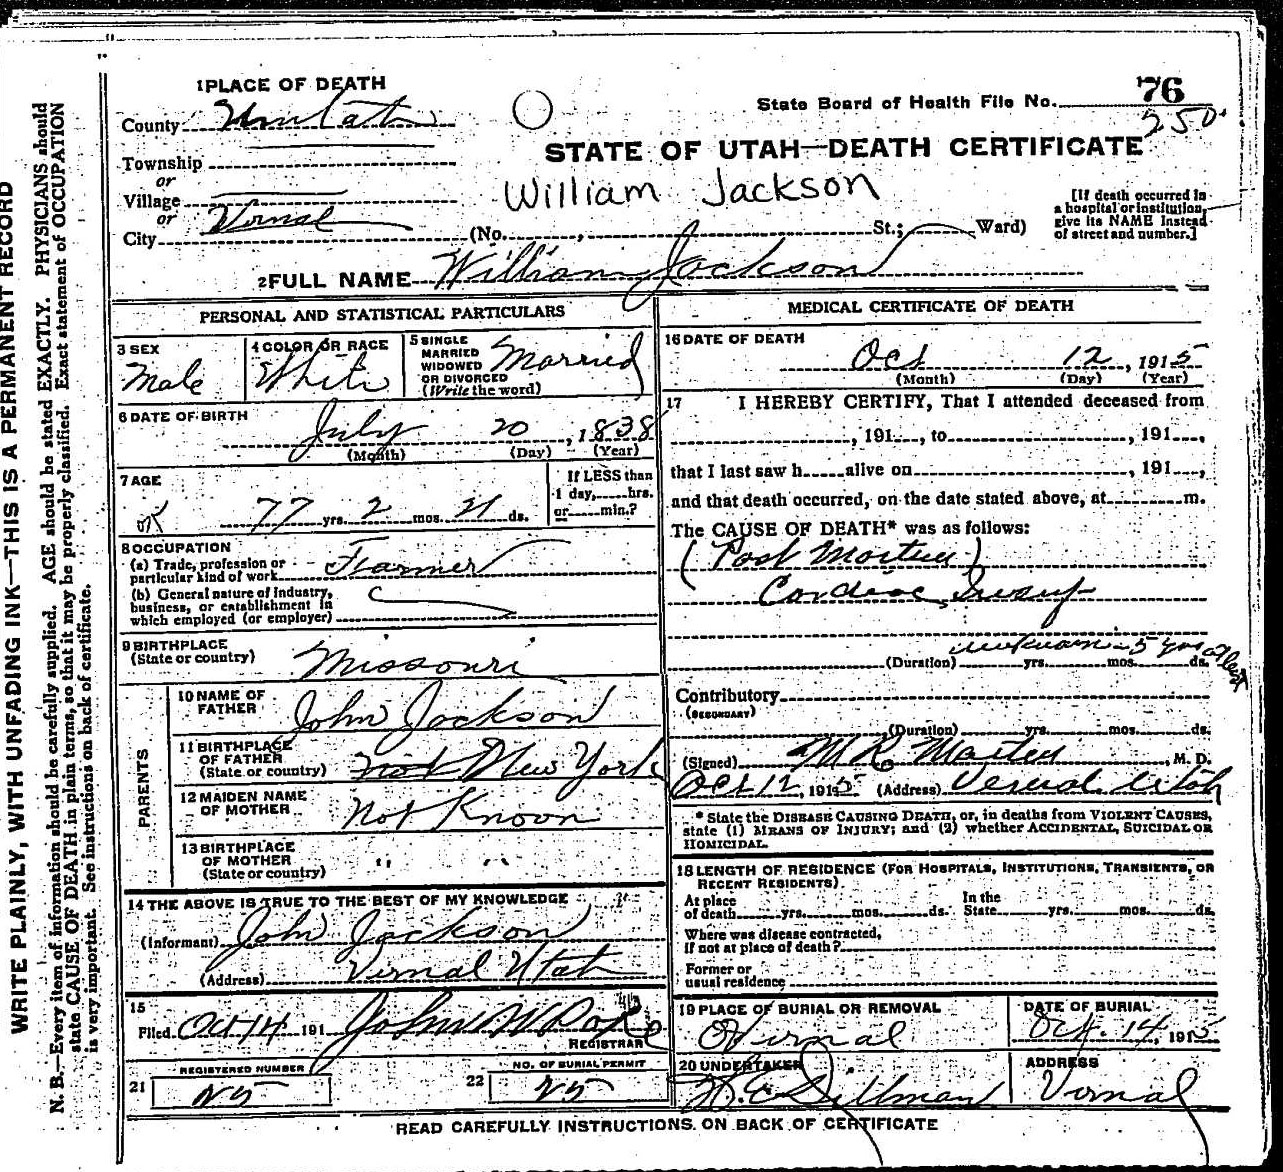 WRITE PLAINLY, WITH UNFADING INK—THIS IS A PERMANENT RECORD
N. B.—Every item of information should be carefully supplied. AGE should be stated EXACTLY. PHYSICIANS should
state CAUSE OF DEATH in plain terms, so that it may be properly classified. Exact statement of OCCUPATION
is very important. See instructions on back of certificate.
1 PLACE OF DEATH
State Board of Health File No. 76
250
County
Township
or
Village
or
City Vernal
STATE OF UTAH—DEATH CERTIFICATE
William Jackson
(No. , St.; Ward)
[If death occurred in
a hospital or institution,
give its NAME instead
of street and number.]
2 FULL NAME William Jackson
PERSONAL AND STATISTICAL PARTICULARS
3 SEX
Male
4 COLOR OR RACE
White
5 SINGLE
MARRIED
WIDOWED
OR DIVORCED
(Write the word)
Married
6 DATE OF BIRTH
July 20, 1838
(Month) (Day) (Year)
7 AGE
77 yrs. 2 mos. 21 ds.
If LESS than
1 day, hrs.
or min.?
8 OCCUPATION
(a) Trade, profession or
particular kind of work Farmer
(b) General nature of industry,
business, or establishment in
which employed (or employer)
9 BIRTHPLACE
(State or country) Missouri
PARENTS
10 NAME OF
FATHER John Jackson
11 BIRTHPLACE
OF FATHER
(State or country) not New York
12 MAIDEN NAME
OF MOTHER Not Knoon
13 BIRTHPLACE
OF MOTHER
(State or country) " "
14 THE ABOVE IS TRUE TO THE BEST OF MY KNOWLEDGE
(Informant) John Jackson
(Address) Vernal Utah
15
Filed Oct 14 191 John N Pope
REGISTRAR
21 REGISTERED NUMBER
25
22 NO. OF BURIAL PERMIT
25
MEDICAL CERTIFICATE OF DEATH
16 DATE OF DEATH
Oct 12, 1915
(Month) (Day) (Year)
17 I HEREBY CERTIFY, That I attended deceased from
, 191 , to , 191 ,
that I last saw h alive on , 191 ,
and that death occurred, on the date stated above, at m.
The CAUSE OF DEATH* was as follows:
(Post Mortem)
Cardiac Insuf
unknown - 5 yrs at least
(Duration) yrs. mos. ds.
Contributory
(SECONDARY)
(Duration) yrs. mos. ds.
(Signed) M. D.
Oct 12, 1915 (Address) Vernal Utah
* State the DISEASE CAUSING DEATH, or, in deaths from VIOLENT CAUSES,
state (1) MEANS OF INJURY; and (2) whether ACCIDENTAL, SUICIDAL OR
HOMICIDAL.
18 LENGTH OF RESIDENCE (FOR HOSPITALS, INSTITUTIONS, TRANSIENTS, OR
RECENT RESIDENTS).
At place
of death yrs. mos. ds.
In the
State yrs. mos. ds.
Where was disease contracted,
if not at place of death?
Former or
usual residence
19 PLACE OF BURIAL OR REMOVAL
Vernal
DATE OF BURIAL
Oct. 14, 1915
20 UNDERTAKER
Dillman
ADDRESS
Vernal
READ CAREFULLY INSTRUCTIONS ON BACK OF CERTIFICATE